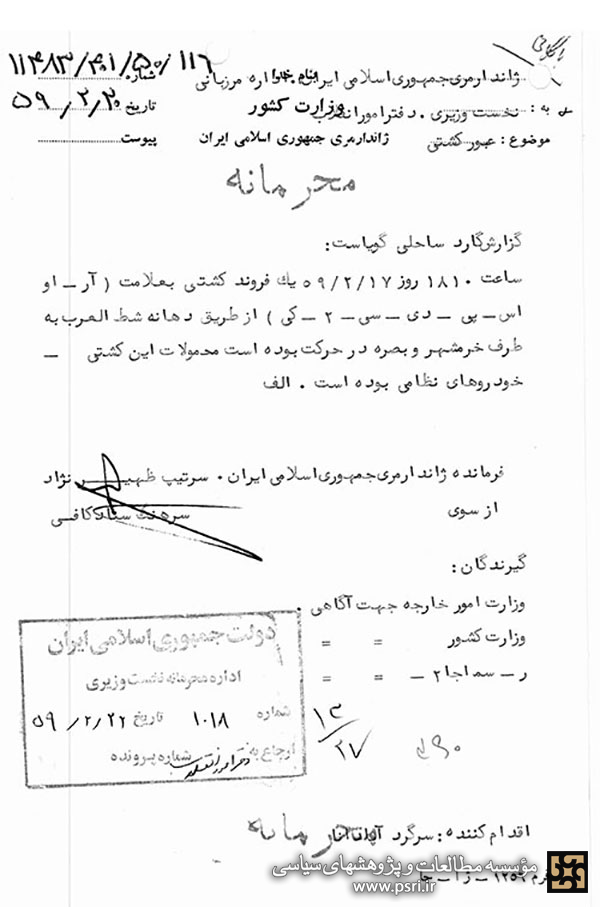 بایگانی
ژاندارمری جمهوری اسلامی ایران بنام خدا اداره مرزبانی
شماره ۱۱۶/۵۰/۴۰۱/۱۱۴۸۳
به : نخست وزیری . دفتر امور انقلاب
وزارت کشور
تاریخ ۵۹/۲/۲۰
موضوع : عبور کشتی
ژاندارمری جمهوری اسلامی ایران
پیوست
محرمانه
گزارش گارد ساحلی گویاست:
ساعت ۱۸۱۰ روز ۵۹/۲/۱۷ یك فروند کشتی بعلامت ( آر ـ او
اس ـ پی ـ دی ـ سی ـ ۲ ـ کی ) از طریق دهانه شط العرب به
طرف خرمشهر و بصره در حرکت بوده است محمولات این کشتی ـ
خودروهای نظامی بوده است . الف
فرمانده ژاندارمری جمهوری اسلامی ایران . سرتیپ ظهیر نژاد
از سوی
سرهنگ ستاد کافی
گیرندگان :
وزارت امور خارجه جهت آگاهی .
وزارت کشور = =
ر ـ سماجا ۲ ـ = =
دولت جمهوری اسلامی ایران
اداره محرمانه نخست وزیری
شماره ۱۰۱۸ تاریخ ۵۹/۲/۲۲
ارجاع به دفتر امور انقلاب شماره پرونده
۱۳/۲۷
۶۹۰
اقدام کننده : سرگرد
محرمانه
فرم ۱۲۵۶ ـ ژ ا ـ جا
مؤسسه مطالعات و پژوهشهای سیاسی
www.psri.ir